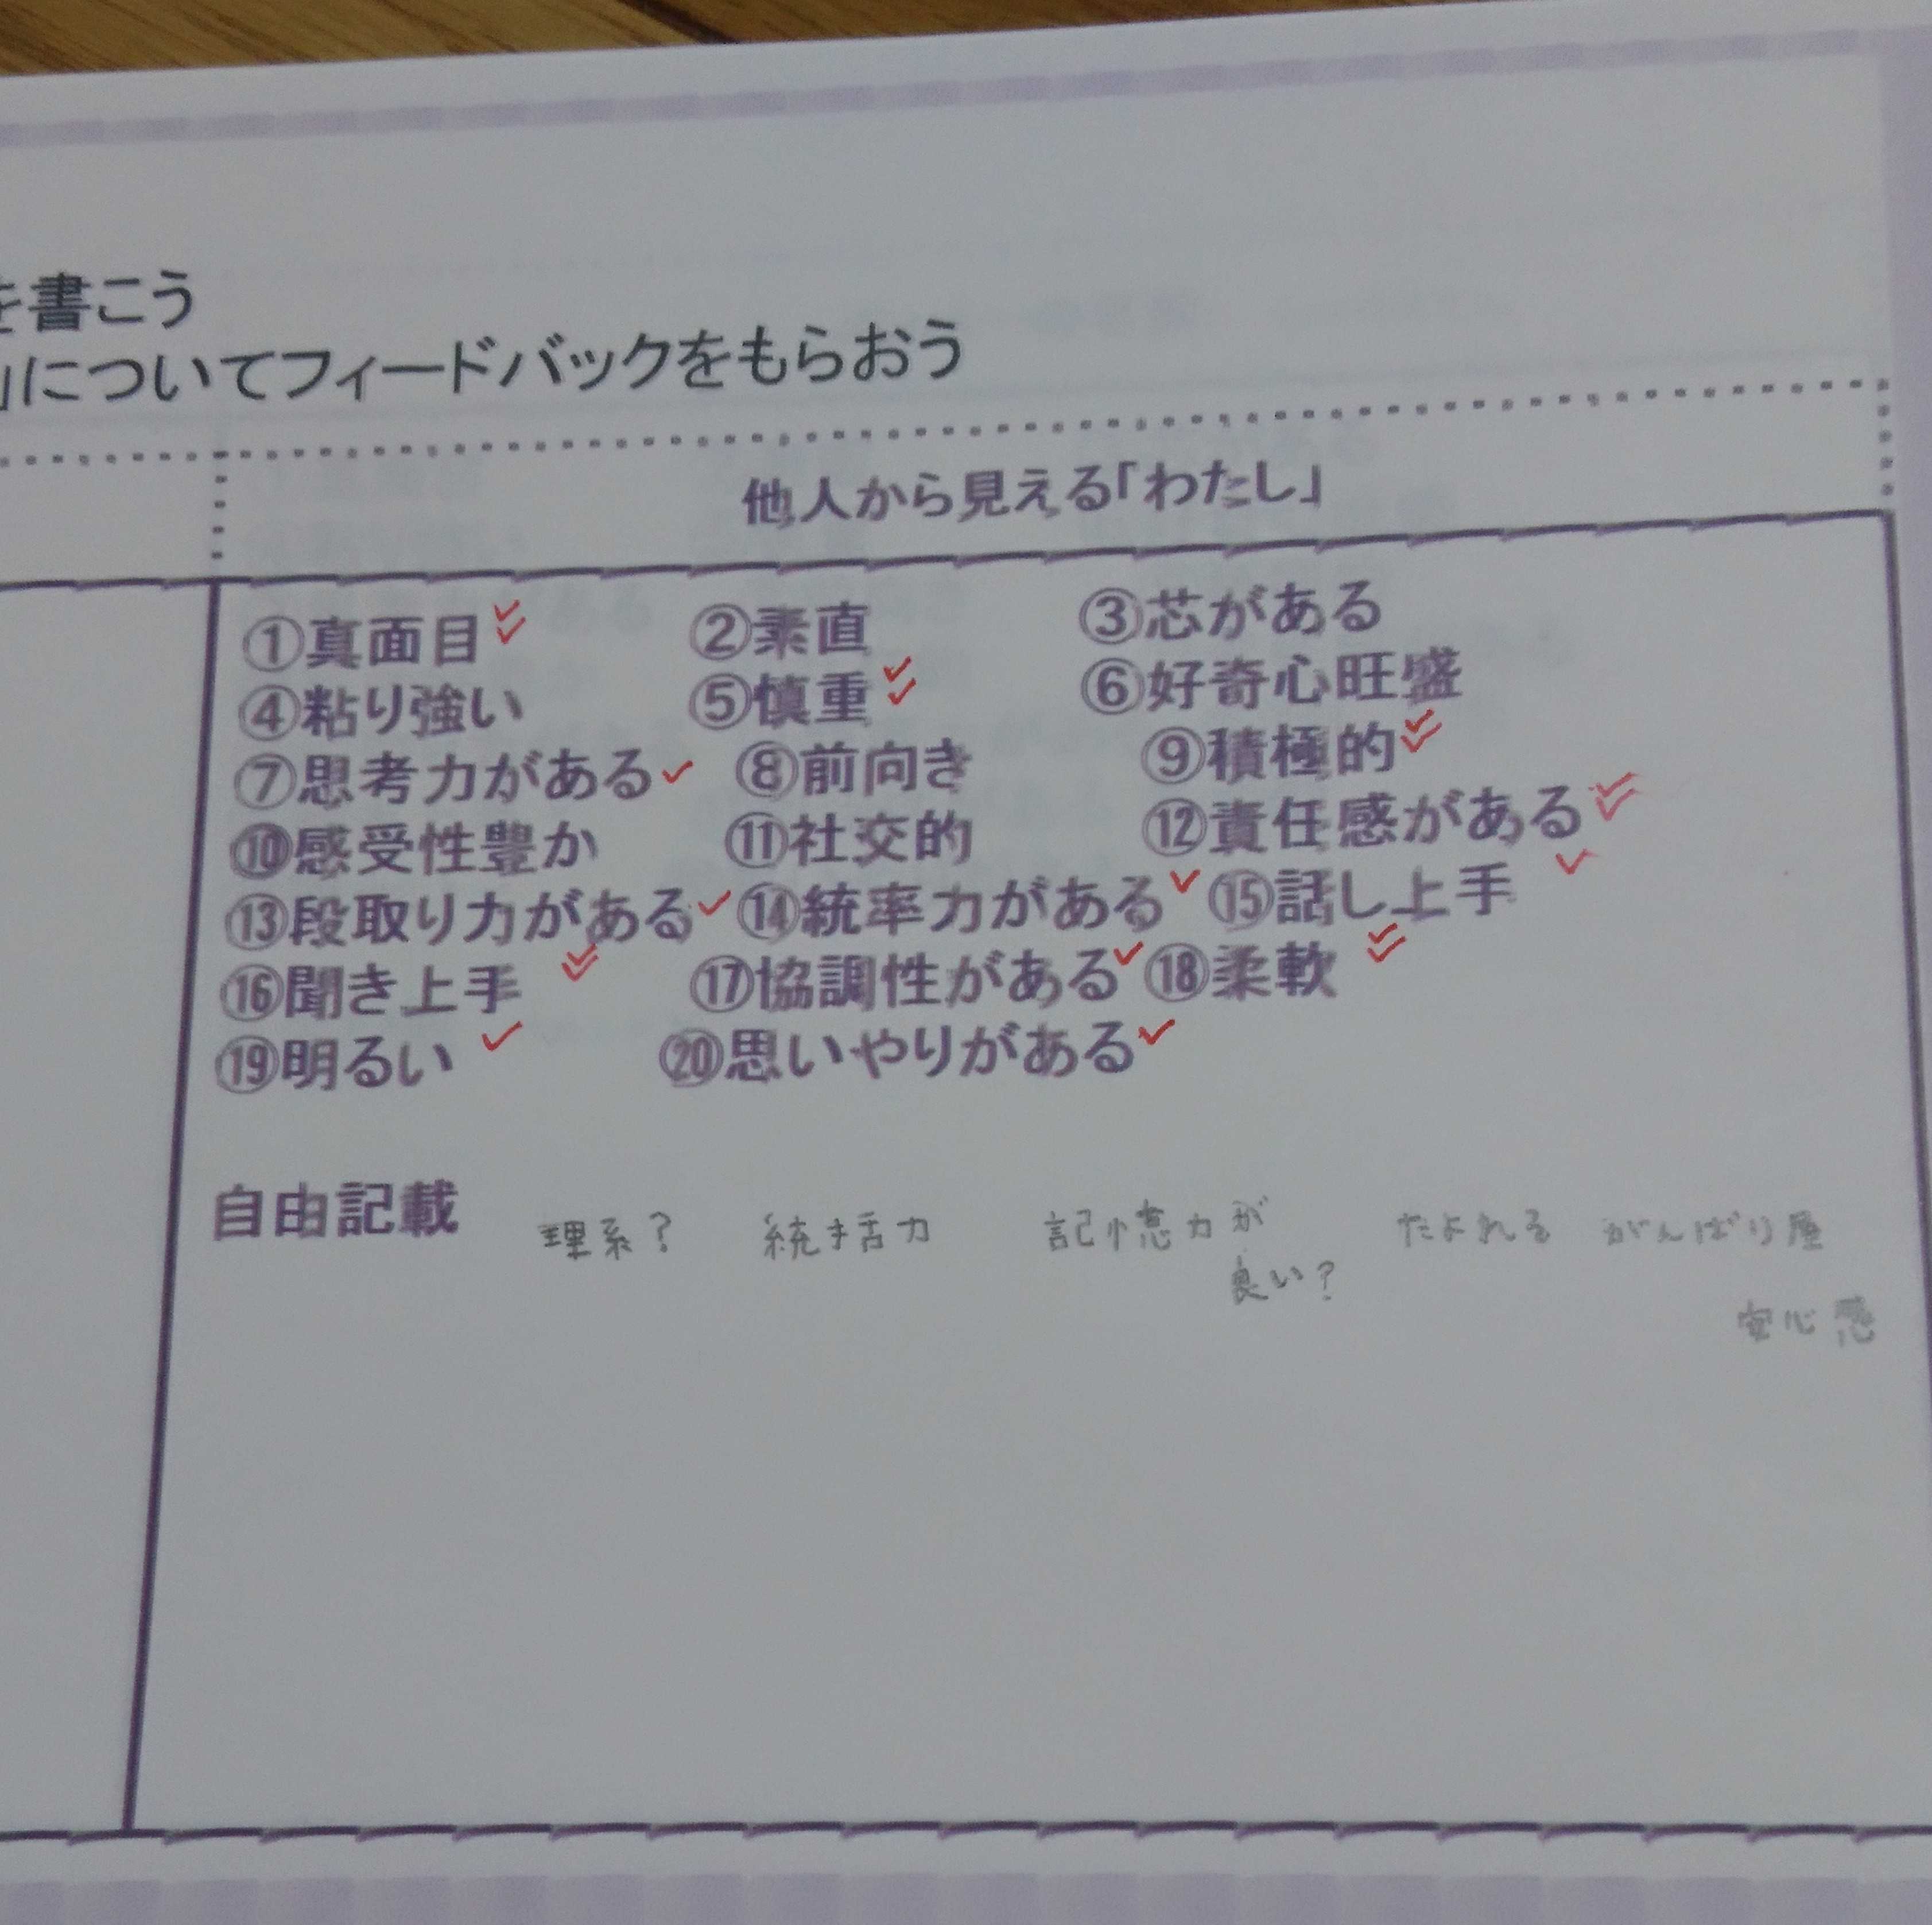 を書こう
」についてフィードバックをもらおう
他人から見える「わたし」
①真面目 ②素直 ③芯がある
④粘り強い ⑤慎重 ⑥好奇心旺盛
⑦思考力がある ⑧前向き ⑨積極的
⑩感受性豊か ⑪社交的 ⑫責任感がある
⑬段取り力がある ⑭統率力がある ⑮話し上手
⑯聞き上手 ⑰協調性がある ⑱柔軟
⑲明るい ⑳思いやりがある
自由記載 理系? 統括力 記憶力が たよれる がんばり屋
良い?
安心感